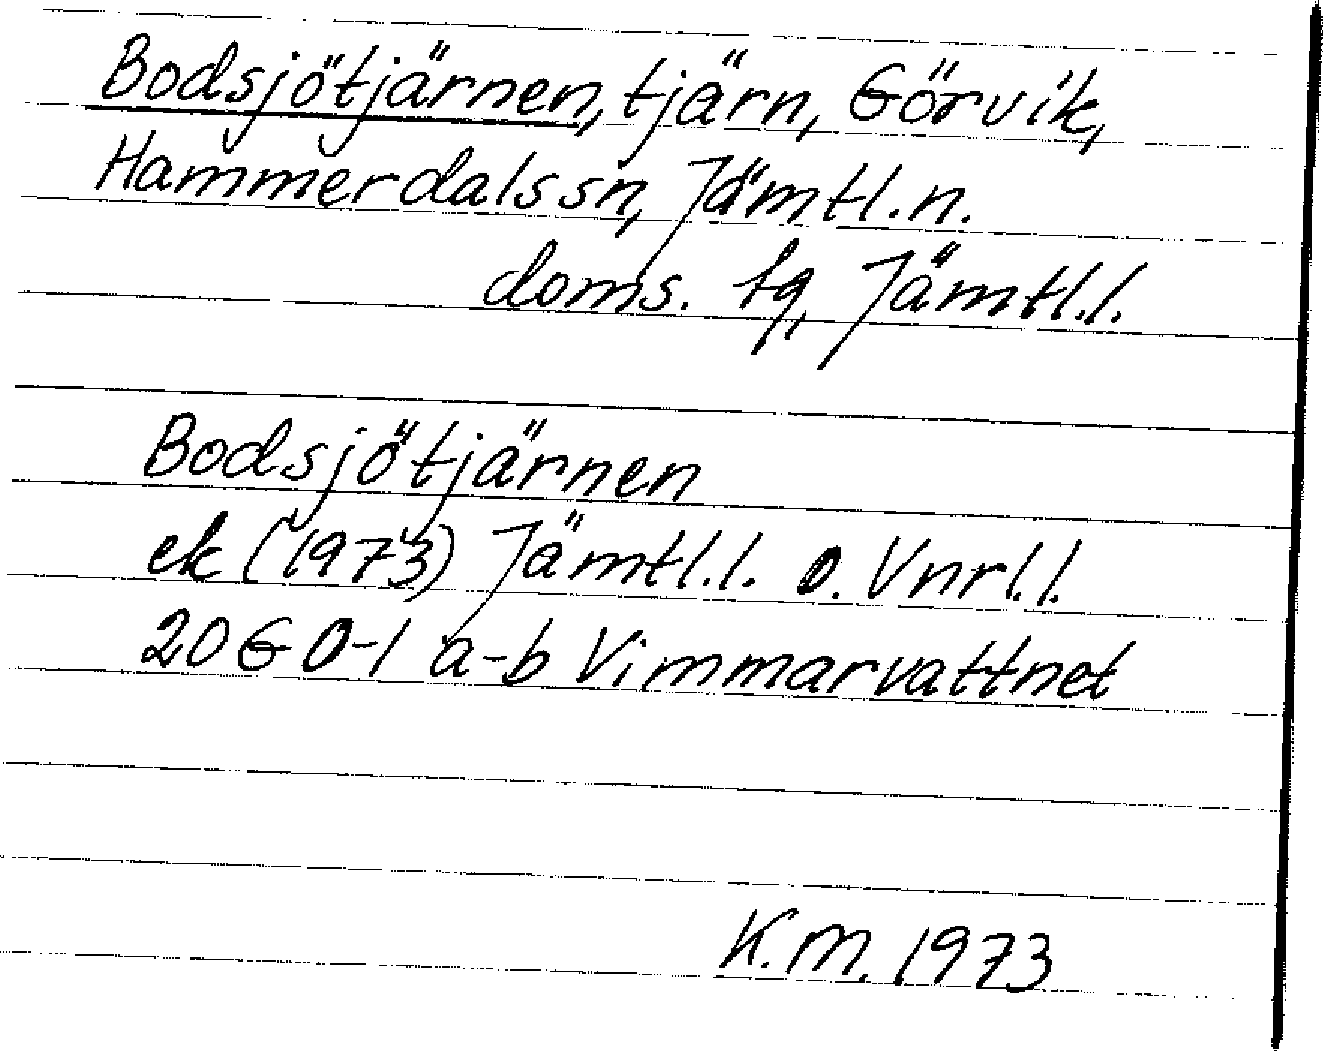 Bodsjötjärnen, tjärn, Görvik,
Hammerdals sn, Jämtl. n.
doms. tg, Jämtl. l.
Bodsjötjärnen
ek (1973) Jämtl. l. o. Vnrl. l.
20 G 0-1 a-b Vimmarvattnet
K.M. 1973